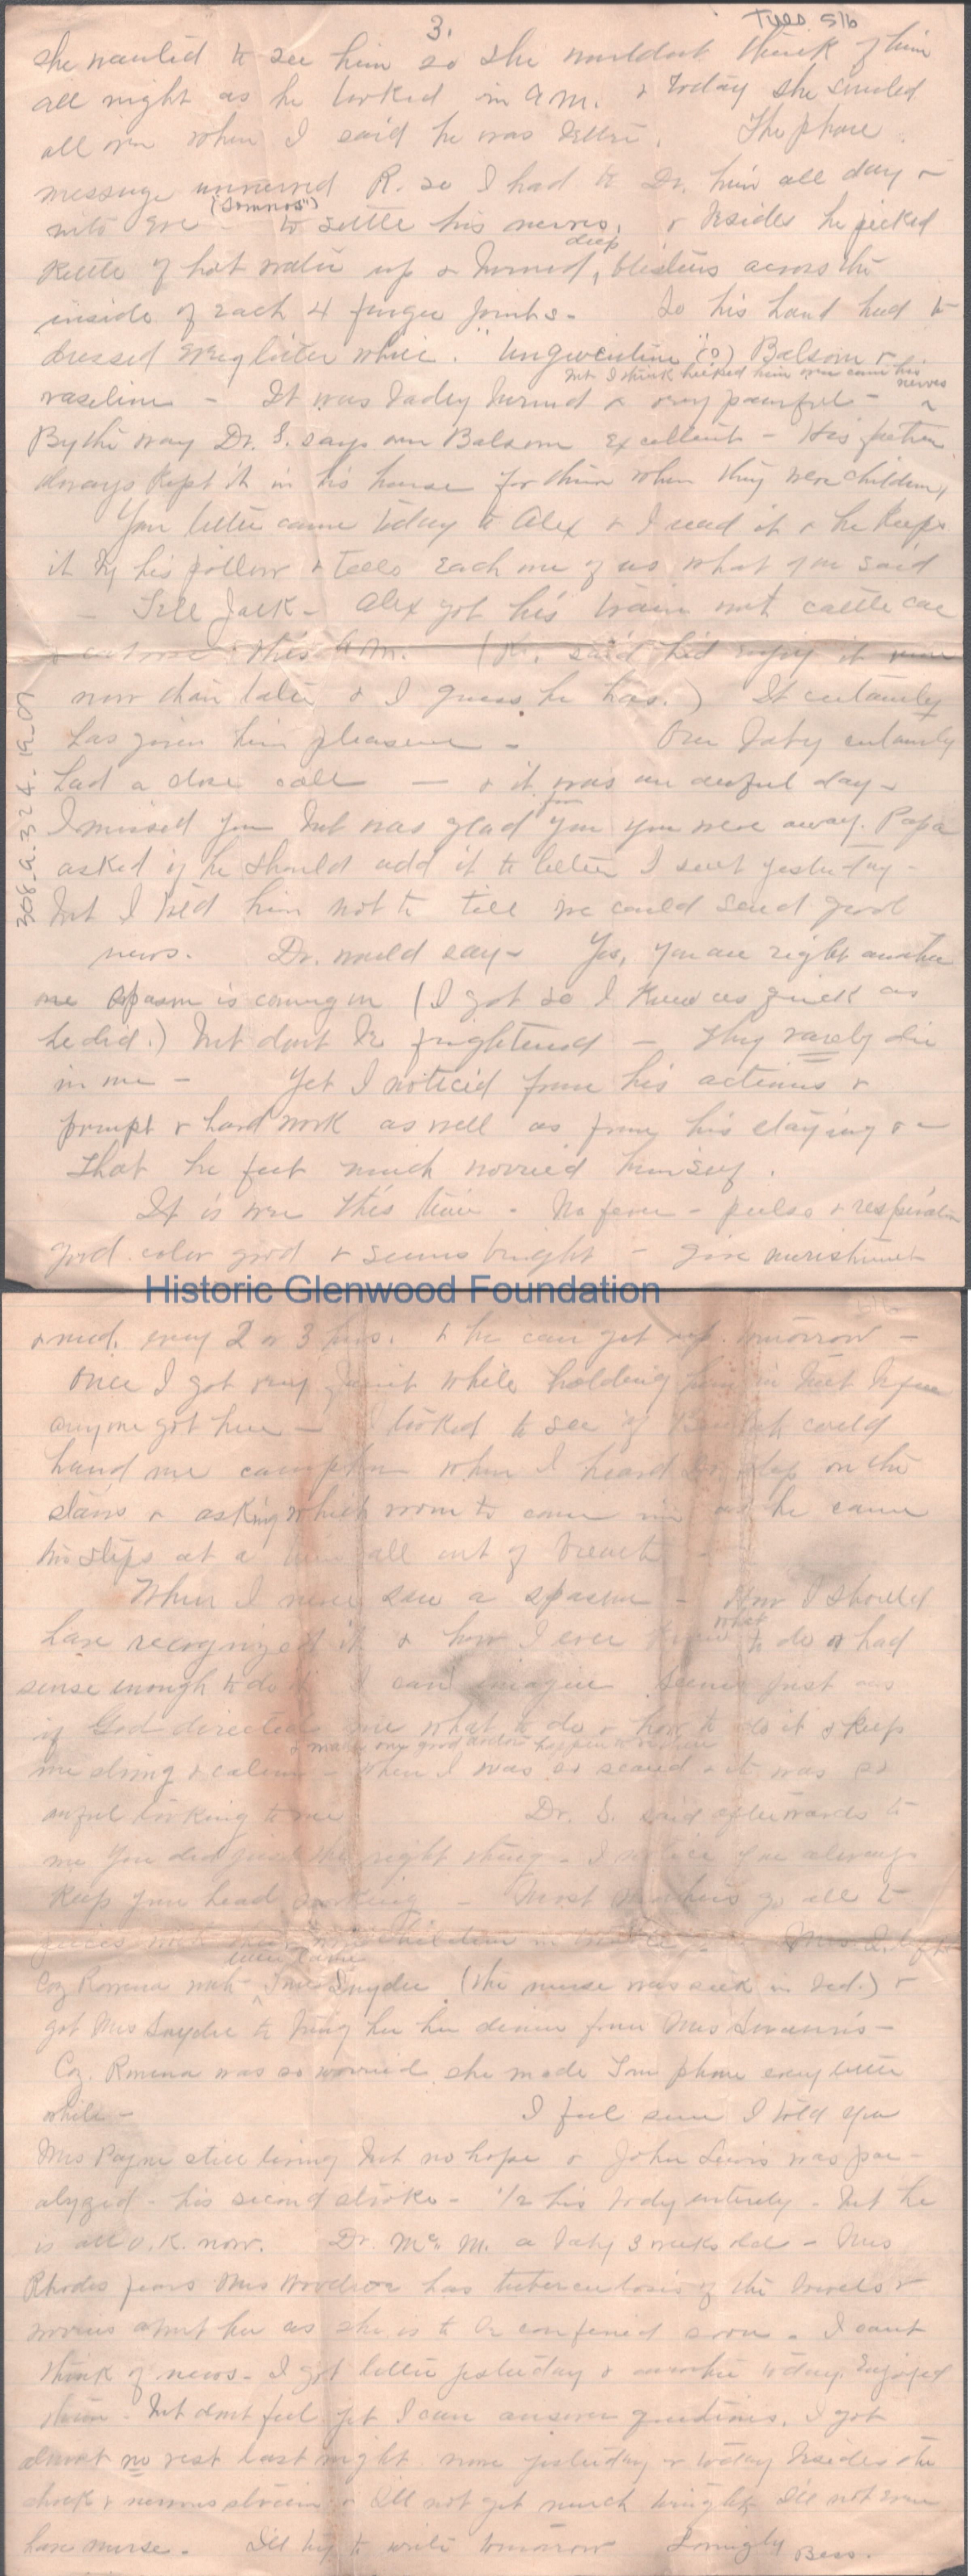 3.
Tues 5/6
she wanted to see him so she wouldnt think of him
all night as he looked in a.m. & today she smiled
all over when I said he was better. The phone
message unnerved R. so I had to Dr. him all day &
into Eve ("Somnos") to settle his nerves, & besides he picked
kettle of hot water up & burned, deep blisters across the
inside of each 4 finger joints - So his hand had to
dressed every little while. "Unguentine" (?) Balsom &
vaseline - It was badly burned & very painful - but I think helped him over come his nerves
By the way Dr. S. says our Balsom excellent - His father
always kept it in his house for them when they were children,
Your letter came today to Alex & I read it & he keeps
it by his pillow & tells each one of us what you said
- Tell Jack - Alex got his train not cattle car
this A.M. (Dr. said he'd enjoy it more
now than later & I guess he has.) It certainly
has given him pleasure - Our baby certainly
had a close call - & it was an awful day -
I missed you but was glad for you you were away. Papa
asked if he should add it to letter I sent yesterday -
but I told him not to till we could send good
news. Dr. would say - Yes, you are right another
one spasm is coming on (I got so I knew as quick as
he did.) but dont be frightened - they rarely die
in one - Yet I noticed from his actions &
prompt & hard work as well as from his staying on
that he felt much worried himself.
It is over this time - No fever - pulse & respiration
good color good & seems bright - give nourishment
308.a.324.19_01
Historic Glenwood Foundation
& med. every 2 or 3 hrs. & he can get up tomorrow -
Once I got very faint while holding him in but before
anyone got here - looked to see if could
hand me camphor when I heard Dr. step on the
stairs & asking which room to come in as he came
two steps at a time all out of breath -
When I never saw a spasm - How I should
have recognized it & how I ever knew what to do or had
sense enough to do it I cant imagine seems just as
if God directed me what to do & how to do it & keep
me strong & calm - when I was so scared & it was so
awful looking to me Dr. S. said afterwards to
me You did just the right thing - I notice you always
keep your head working - Most mothers go all to
pieces with children in Mrs left
Coz Rowena with Tom Snyder (the nurse was sick in bed.) &
got Mrs Snyder to bring her her dinner from Mrs Swann's -
Coz. Rowena was so worried, she made Tom phone every little
while - I feel sure I told you
Mrs Payne still living but no hope & John Lewis was par-
alyzed - his second stroke - 1/2 his body entirely - but he
is all O.K. now. Dr. McM. a baby 3 weeks old - Mrs
Rhodes fears Mrs Woodson has tuberculosis of the bowels &
worries about her as she is to be confined soon - I cant
think of news - I got letter yesterday & another today. Enjoyed
them - but dont feel yet I can answer questions. I got
almost no rest last night none yesterday & today besides the
shock & nervous strain & I'll not get much tonight I'll not even
have nurse. I'll try to write tomorrow Lovingly Bess.